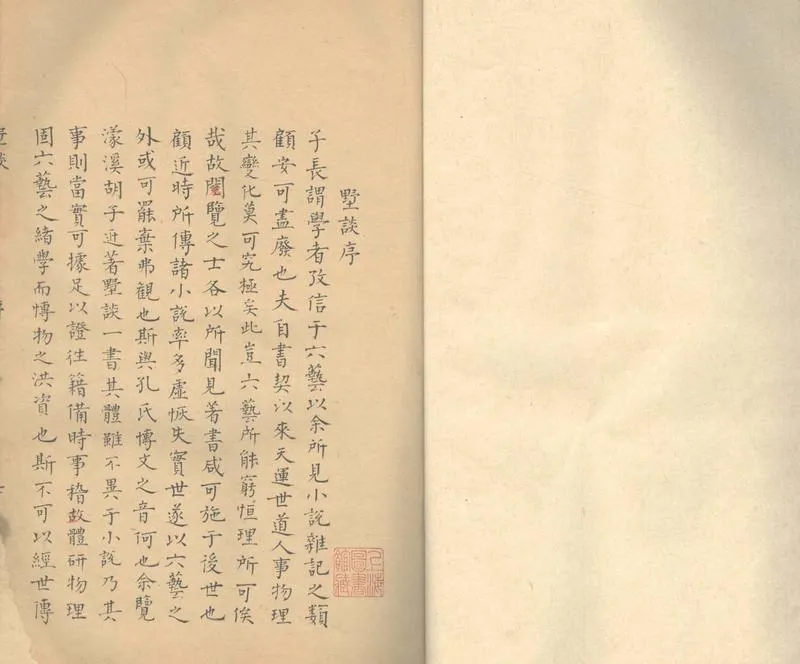 墅談序
子長謂學者攷信于六藝以余所見小說雜記之類
顧安可盡廢也夫自書契以來天運世道人事物理
其變化莫可究極矣此豈六藝所能窮恒理所可俟
哉故閱覽之士各以所聞見著書咸可施于後世也
顧近時所傳諸小說率多虛恢失實世遂以六藝之
外或可罷棄弗觀也斯與孔氏博文之音何也余覽
濛溪胡子近著墅談一書其體雖不異于小說乃其
事則當實可據足以證往籍備時事稽故體研物理
固六藝之緒學而博物之洪資也斯不可以經世傳
墅談
序